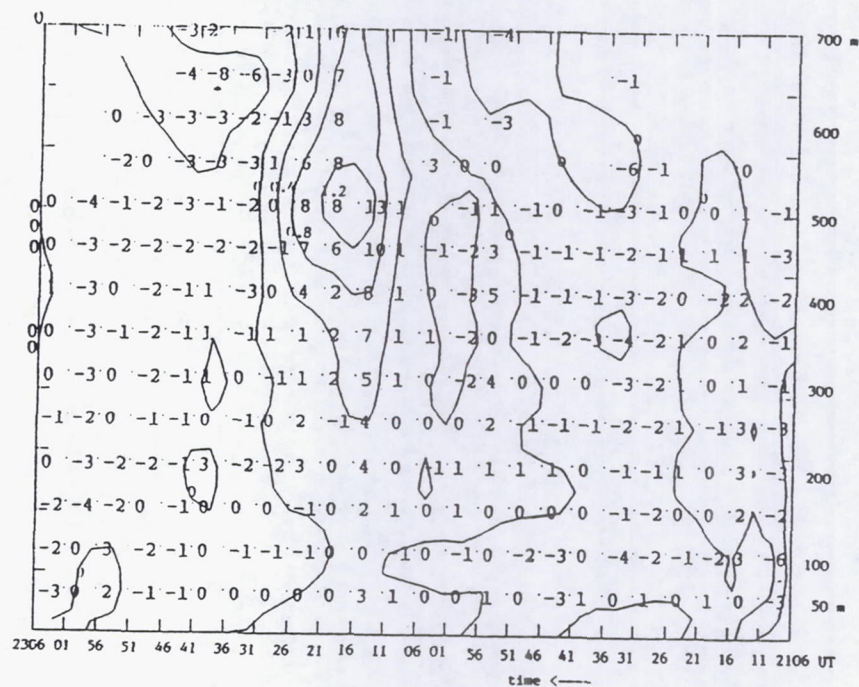 0 -3 2 -2 1 6 -1 -4 700 m
-4 -8 -6 -3 0 7 -1 -1
0 -3 -3 -3 -2 -1 3 8 -1 -3 600
-2 0 -3 -3 -3 1 6 8 3 0 0 0 -6 -1 0
0 0 -4 -1 -2 -3 -1 -2 0 8 8 13 1 0 -1 1 -1 0 -1 -3 -1 0 0 0 1 -1 500
0 0 -3 -2 -2 -2 -2 -2 -1 7 6 10 1 -1 -2 3 0 -1 -1 -1 -2 -1 1 1 1 -3
-3 0 -2 -1 1 -3 0 4 2 8 1 0 -3 5 -1 -1 -1 -3 -2 0 -2 2 -2 400
0 0 -3 -1 -2 -1 1 -1 1 1 2 7 1 1 -2 0 -1 -2 -3 -4 -2 1 0 2 -1
0
0 -3 0 -2 -1 1 0 -1 1 2 5 1 0 -2 4 0 0 0 -3 -2 1 0 1 -1 300
-1 -2 0 -1 -1 0 -1 0 2 -1 4 0 0 0 2 -1 -1 -1 -2 -2 1 -1 3 -3
0 -3 -2 -2 -1 3 -2 -2 3 0 4 0 -1 1 1 1 1 0 -1 -1 1 0 3 -3 200
-2 -4 -2 0 -1 0 0 0 -1 0 2 1 0 1 0 0 0 0 -1 -2 0 0 2 -2
-2 0 3 -2 -1 0 -1 -1 -1 0 0 1 0 -1 0 -2 -3 0 -4 -2 -1 -2 3 -6 100
-3 0 2 -1 -1 0 0 0 0 0 3 1 0 0 1 0 -3 1 0 1 0 1 0 3 50 m
2306 01 56 51 46 41 36 31 26 21 16 11 06 01 56 51 46 41 36 31 26 21 16 11 2106 UT
time <----